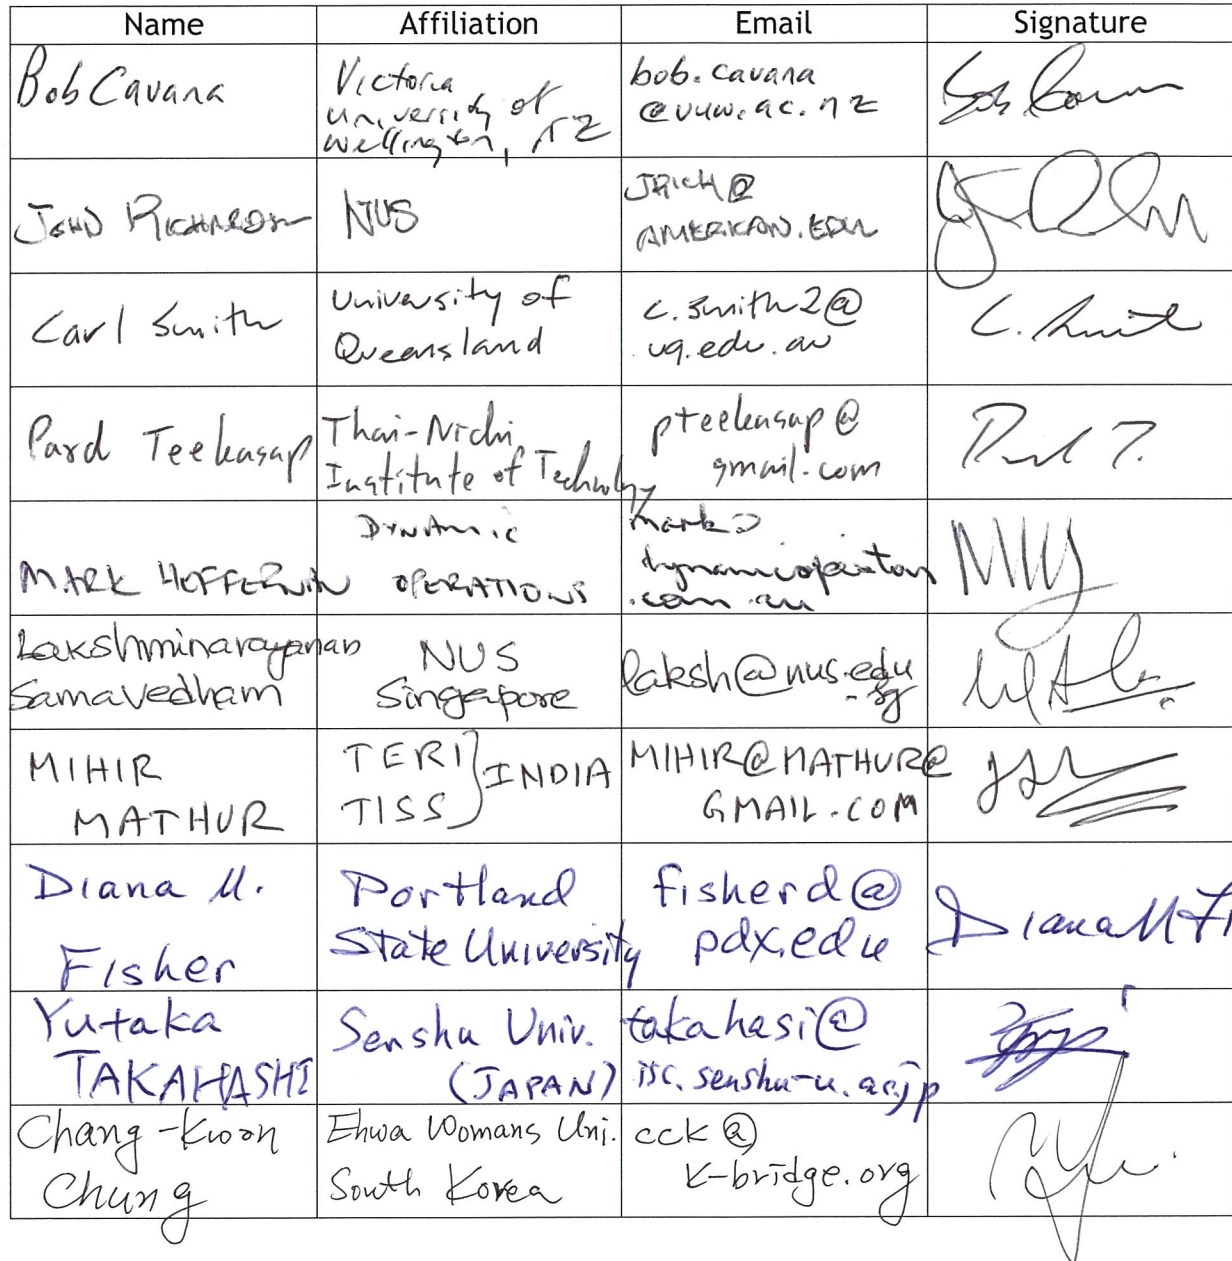 Name Affiliation Email Signature
Bob Cavana
Victoria
University of
Wellington, NZ
bob.cavana
@vuw.ac.nz
JOHN RICHARDSON
NUS
JRICH@
AMERICAN.EDU
Carl Smith
University of
Queensland
c.smith2@
uq.edu.au
C. Smith
Pard Teekasap
Thai-Nichi
Institute of Technology
pteekasap@
gmail.com
Pard T.
MARK HEFFERNAN
DYNAMIC
OPERATIONS
mark@
dynamicoperations
.com.au
Lakshminarayanan
Samavedham
NUS
Singapore
laksh@nus.edu
.sg
MIHIR
MATHUR
TERI
TISS
INDIA
MIHIR@MATHUR@
GMAIL.COM
Diana M.
Fisher
Portland
State University
fisherd@
pdx.edu
Diana M Fi
Yutaka
TAKAHASHI
Senshu Univ.
(JAPAN)
takahasi@
isc.senshu-u.ac.jp
Chang-Kwon
Chung
Ehwa Womans Uni.
South Korea
cck@
k-bridge.org